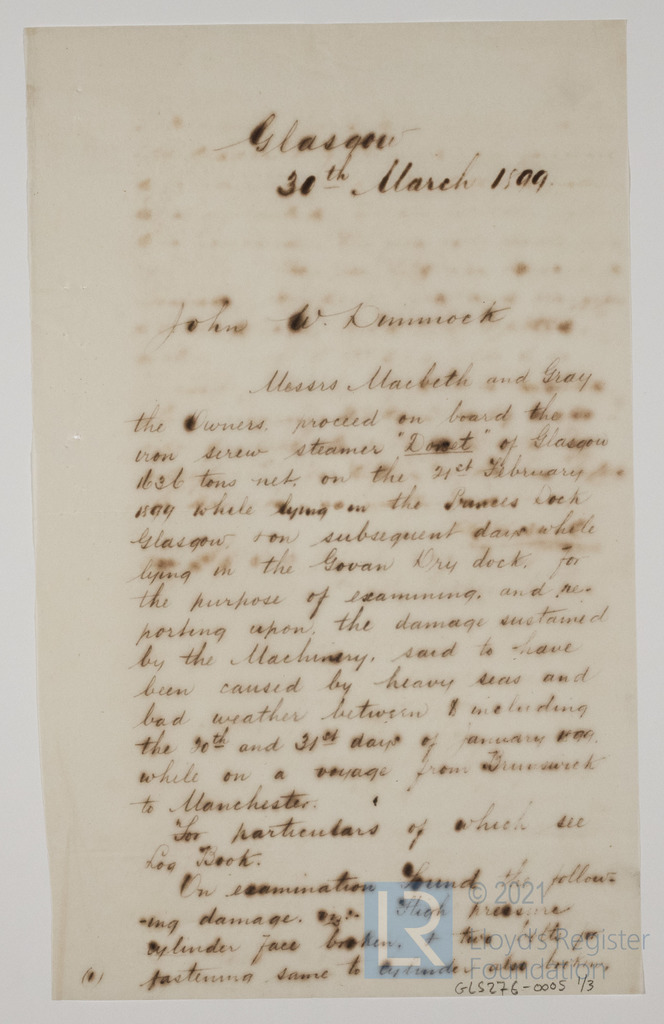 Glasgow
30th March 1899.
John W. Dimmock
Messrs Macbeth and Gray
the Owners. proceed on board the
iron screw steamer "Dorset" of Glasgow
1636 tons net. on the 21st February
1899 while lying in the Princes Dock
Glasgow, & on subsequent days while
lying in the Govan Dry dock. for
the purpose of examining. and re-
porting upon. the damage sustained
by the Machinery. said to have
been caused by heavy seas and
bad weather between & including
the 20th and 31st days of January 1899.
while on a voyage from Brunswick
to Manchester.
For particulars of which see
Log Book.
On examination found the follow-
-ing damage. viz:- High pressure
cylinder face broken, & two bolts
fastening same to cylinder also broken,
(1)
© 2021
Lloyd's Register
Foundation
LR
GLS276-0005 1/3